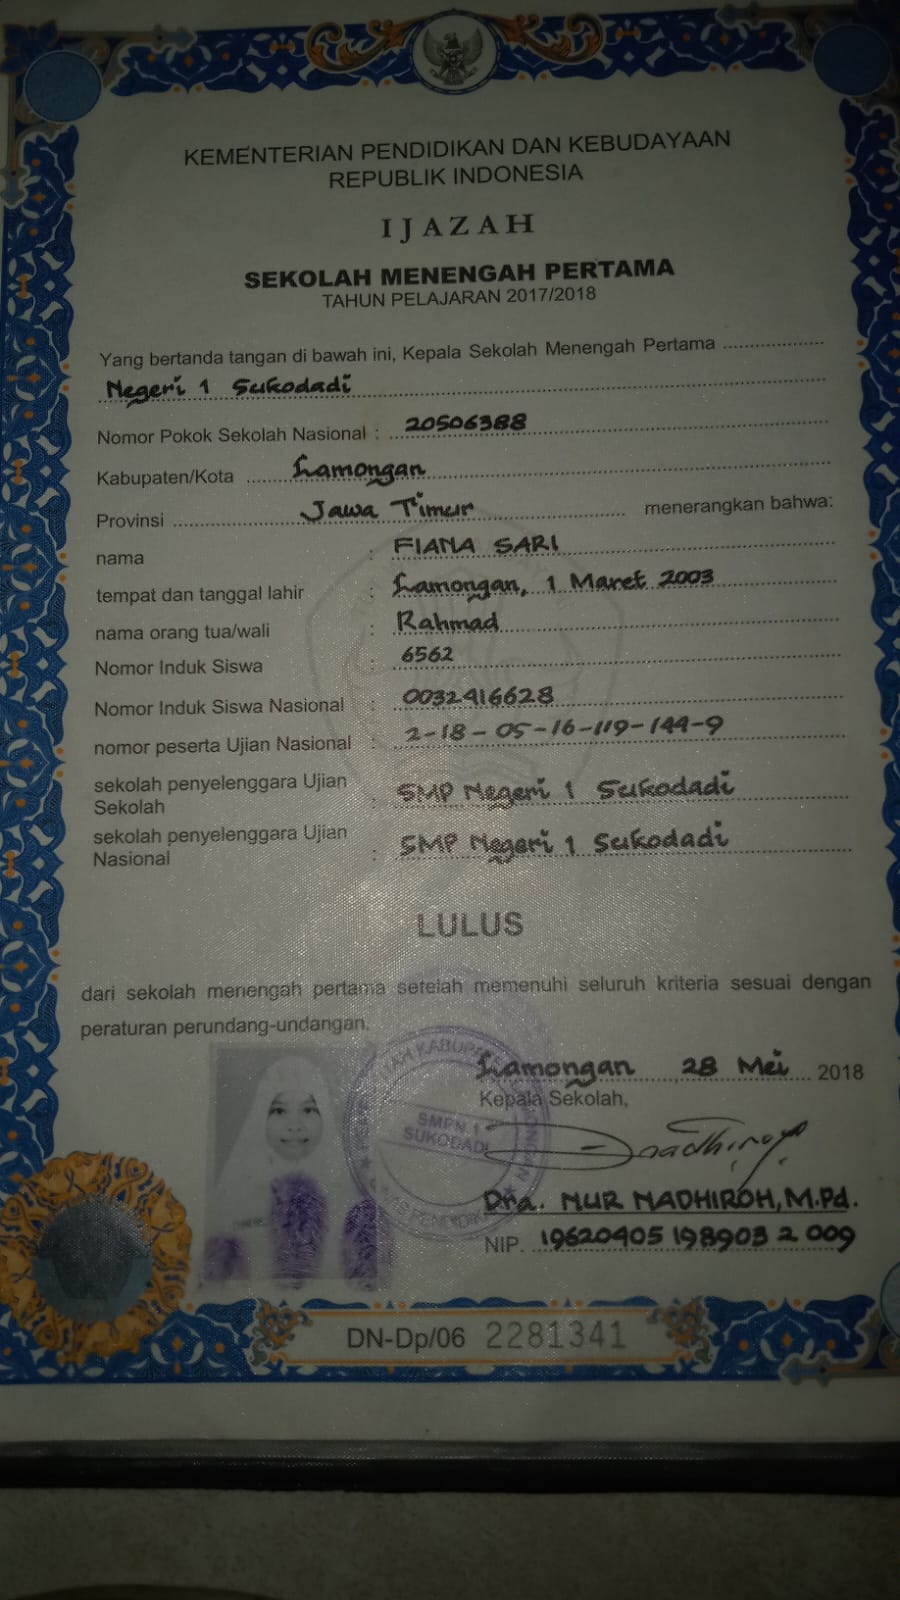 KEMENTERIAN PENDIDIKAN DAN KEBUDAYAAN
REPUBLIK INDONESIA
IJAZAH
SEKOLAH MENENGAH PERTAMA
TAHUN PELAJARAN 2017/2018
Yang bertanda tangan di bawah ini, Kepala Sekolah Menengah Pertama
Negeri 1 Sukodadi
Nomor Pokok Sekolah Nasional : 20506388
Kabupaten/Kota Lamongan
Provinsi Jawa Timur menerangkan bahwa:
nama : FIANA SARI
tempat dan tanggal lahir : Lamongan, 1 Maret 2003
nama orang tua/wali : Rahmad
Nomor Induk Siswa : 6562
Nomor Induk Siswa Nasional : 0032416628
nomor peserta Ujian Nasional : 2-18-05-16-119-144-9
sekolah penyelenggara Ujian
Sekolah : SMP Negeri 1 Sukodadi
sekolah penyelenggara Ujian
Nasional : SMP Negeri 1 Sukodadi
LULUS
dari sekolah menengah pertama setelah memenuhi seluruh kriteria sesuai dengan
peraturan perundang-undangan.
Lamongan, 28 Mei 2018
Kepala Sekolah,
SMPN.1
SUKODADI
Dra. NUR NADHIROH, M.Pd.
NIP. 19620405 198903 2 009
DN-Dp/06 2281341